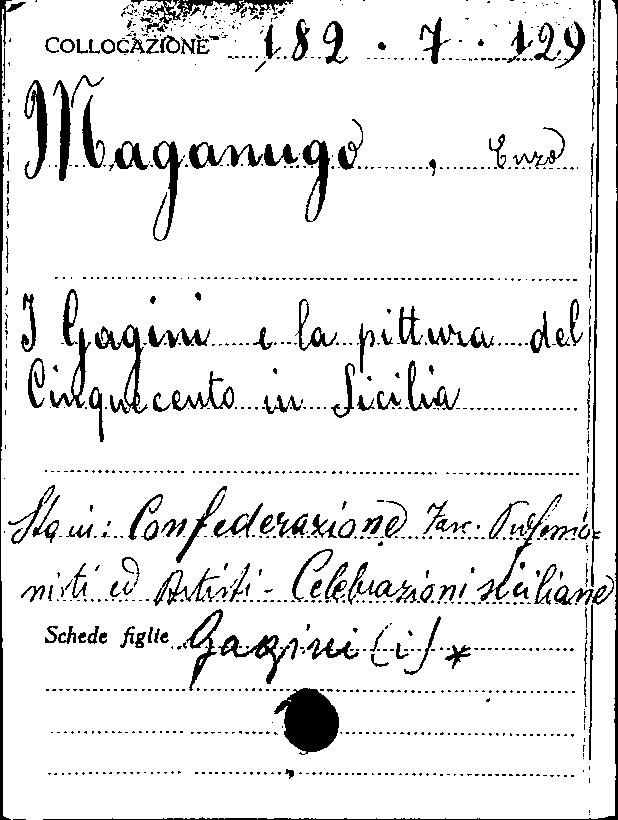 COLLOCAZIONE 182 . 7 . 129
Maganugo , Enzo
I Gagini e la pittura del
Cinquecento in Sicilia
Sta in: Confederazione Fasc. Professio=
nisti ed Artisti - Celebrazioni siciliane
Schede figlie Gagini (i) *